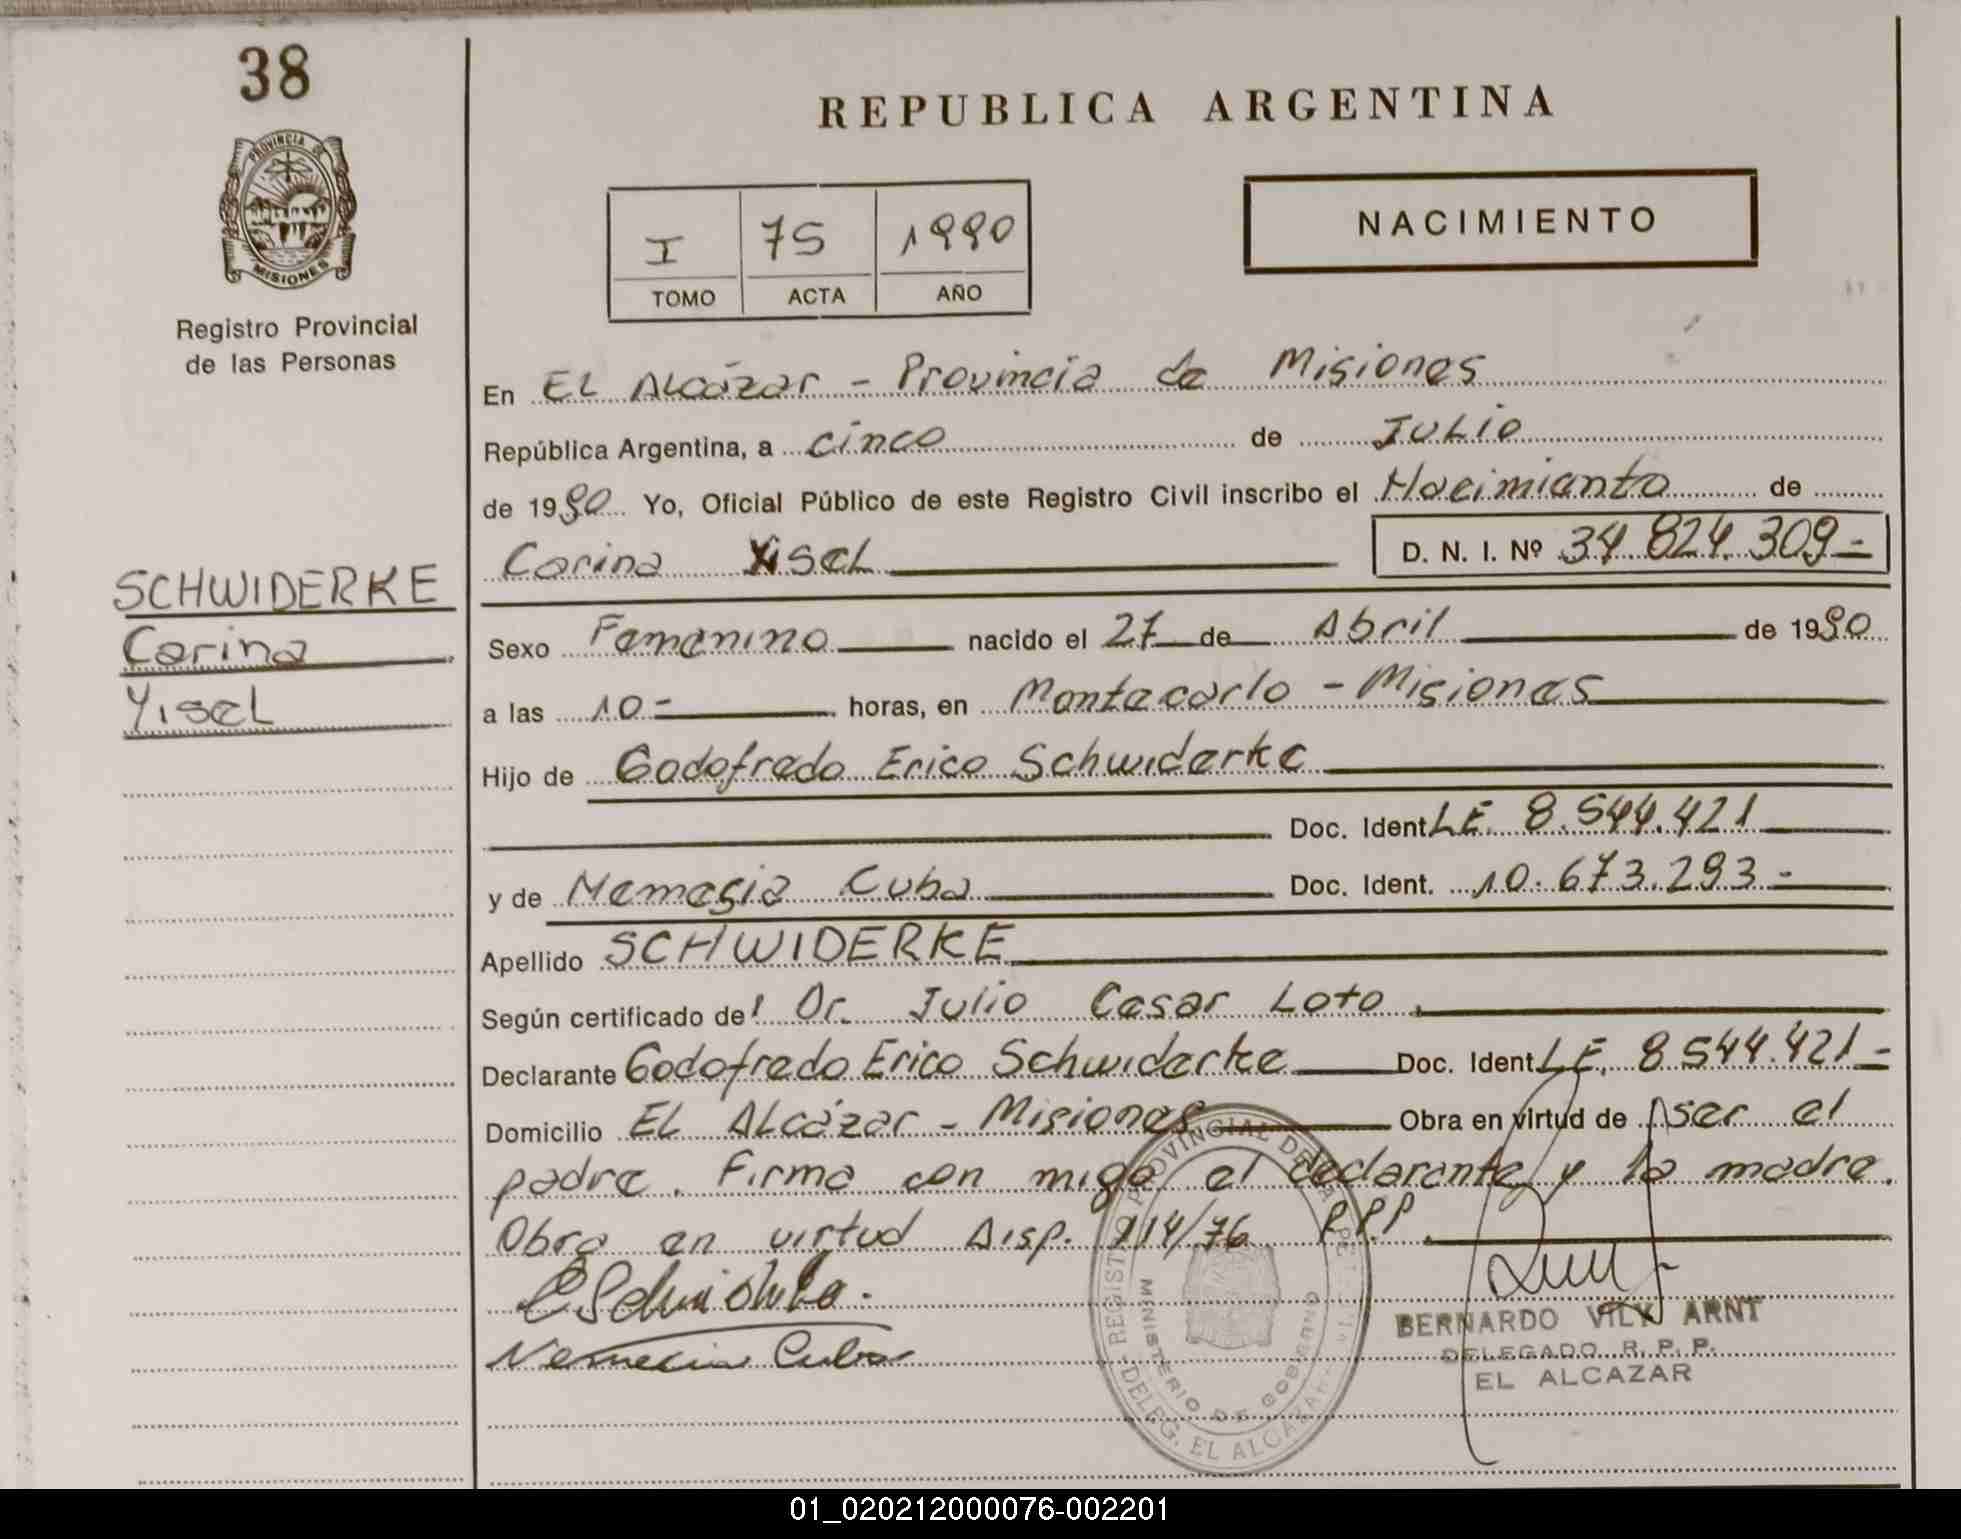 38
REPUBLICA ARGENTINA
PROVINCIA DE
MISIONES
Registro Provincial
de las Personas
I 75 1990
TOMO ACTA AÑO
NACIMIENTO
En EL Alcázar - Provincia de Misiones
República Argentina, a cinco de Julio
de 1990 Yo, Oficial Público de este Registro Civil inscribo el Nacimiento de
Carina Yisel
D. N. I. Nº 34.824.309-
SCHWIDERKE
Carina
Yisel
Sexo Femenino nacido el 27 de Abril de 1990
a las 10- horas, en Montecarlo - Misiones
Hijo de Godofredo Erico Schwiderke
Doc. Ident LE. 8.544.421
y de Nemesia Cuba Doc. Ident. 10.673.293-
Apellido SCHWIDERKE
Según certificado del Dr. Julio Cesar Loto.
Declarante Godofredo Erico Schwiderke Doc. Ident LE. 8.544.421-
Domicilio EL Alcázar - Misiones Obra en virtud de ser el
padre. Firma con migo el declarante y la madre.
Obra en virtud Disp. 114/76 R.P.P.
Nemecia Cuba
REGISTRO PROVINCIAL DE LAS PERSONAS
MINISTERIO DE GOBIERNO
DELEG. EL ALCAZAR
BERNARDO VILY ARNT
DELEGADO R. P. P.
EL ALCAZAR
01_020212000076-002201